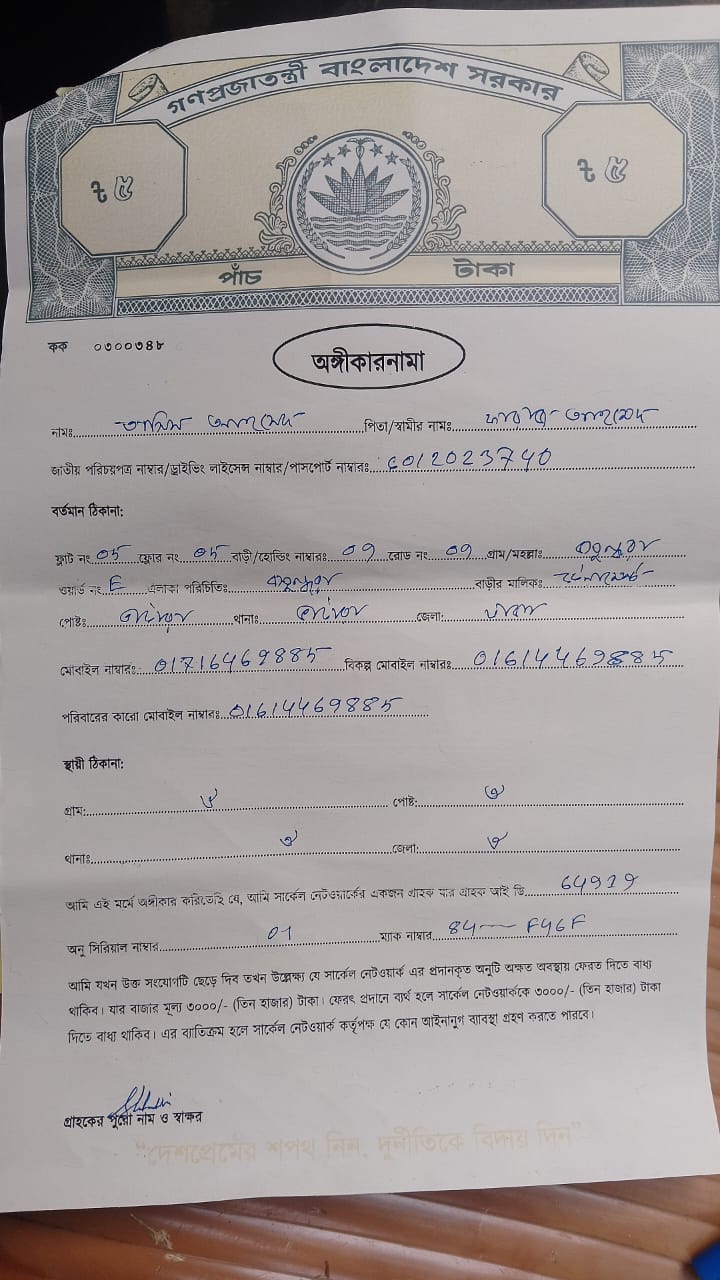 গণপ্রজাতন্ত্রী বাংলাদেশ সরকার
৳ ৫ ৳ ৫
পাঁচ টাকা
কক ০৩০০৩৪৮
অঙ্গীকারনামা
নামঃ তামিম আহমেদ পিতা/স্বামীর নামঃ ফারুক আহমেদ
জাতীয় পরিচয়পত্র নাম্বার/ড্রাইভিং লাইসেন্স নাম্বার/পাসপোর্ট নাম্বারঃ 6012023740
বর্তমান ঠিকানা:
ফ্লাট নং 05 ফ্লোর নং 05 বাড়ী/হোল্ডিং নাম্বারঃ 09 রোড নং 09 গ্রাম/মহল্লাঃ
ওয়ার্ড নং E এলাকা পরিচিতিঃ বাড়ীর মালিকঃ
পোষ্টঃ থানাঃ জেলা: ঢাকা
মোবাইল নাম্বারঃ 01716469885 বিকল্প মোবাইল নাম্বারঃ 01614469885
পরিবারের কারো মোবাইল নাম্বারঃ 01614469885
স্থায়ী ঠিকানা:
গ্রাম: ঐ পোষ্ট: ঐ
থানাঃ ঐ জেলা: ঐ
আমি এই মর্মে অঙ্গীকার করিতেছি যে, আমি সার্কেল নেটওয়ার্কের একজন গ্রাহক যার গ্রাহক আই ডি 64929
অনু সিরিয়াল নাম্বার 01 ম্যাক নাম্বার 84 — F46F
আমি যখন উক্ত সংযোগটি ছেড়ে দিব তখন উল্লেখ্য যে সার্কেল নেটওয়ার্ক এর প্রদানকৃত অনুটি অক্ষত অবস্থায় ফেরত দিতে বাধ্য
থাকিব। যার বাজার মূল্য ৩০০০/- (তিন হাজার) টাকা। ফেরৎ প্রদানে ব্যর্থ হলে সার্কেল নেটওয়ার্ককে ৩০০০/- (তিন হাজার) টাকা
দিতে বাধ্য থাকিব। এর ব্যতিক্রম হলে সার্কেল নেটওয়ার্ক কর্তৃপক্ষ যে কোন আইনানুগ ব্যাবস্থা গ্রহণ করতে পারবে।
গ্রাহকের পুরো নাম ও স্বাক্ষর
“দেশপ্রেমের শপথ নিন, দুর্নীতিকে বিদায় দিন”